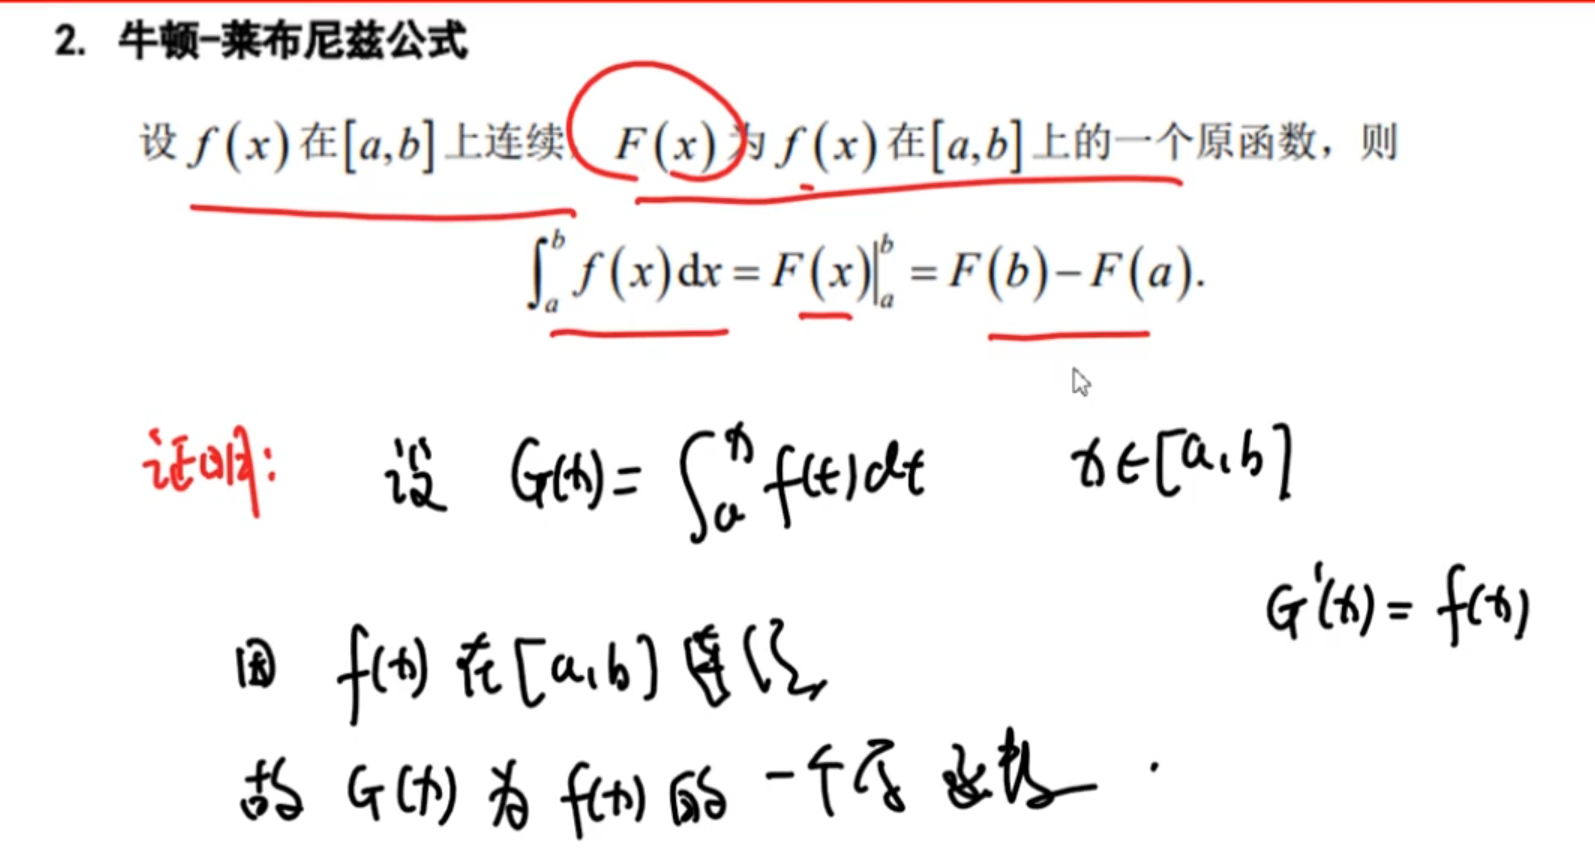 2. 牛顿-莱布尼兹公式
设 f(x) 在[a,b]上连续, F(x)为 f(x) 在[a,b]上的一个原函数，则
∫_a^b f(x)dx = F(x)|_a^b = F(b)−F(a).
证明: 设 G(x)= ∫_a^x f(t)dt x∈[a,b]
G'(x)= f(x)
因 f(x) 在[a,b] 连续,
故 G(x) 为 f(x) 的 一个原函数.